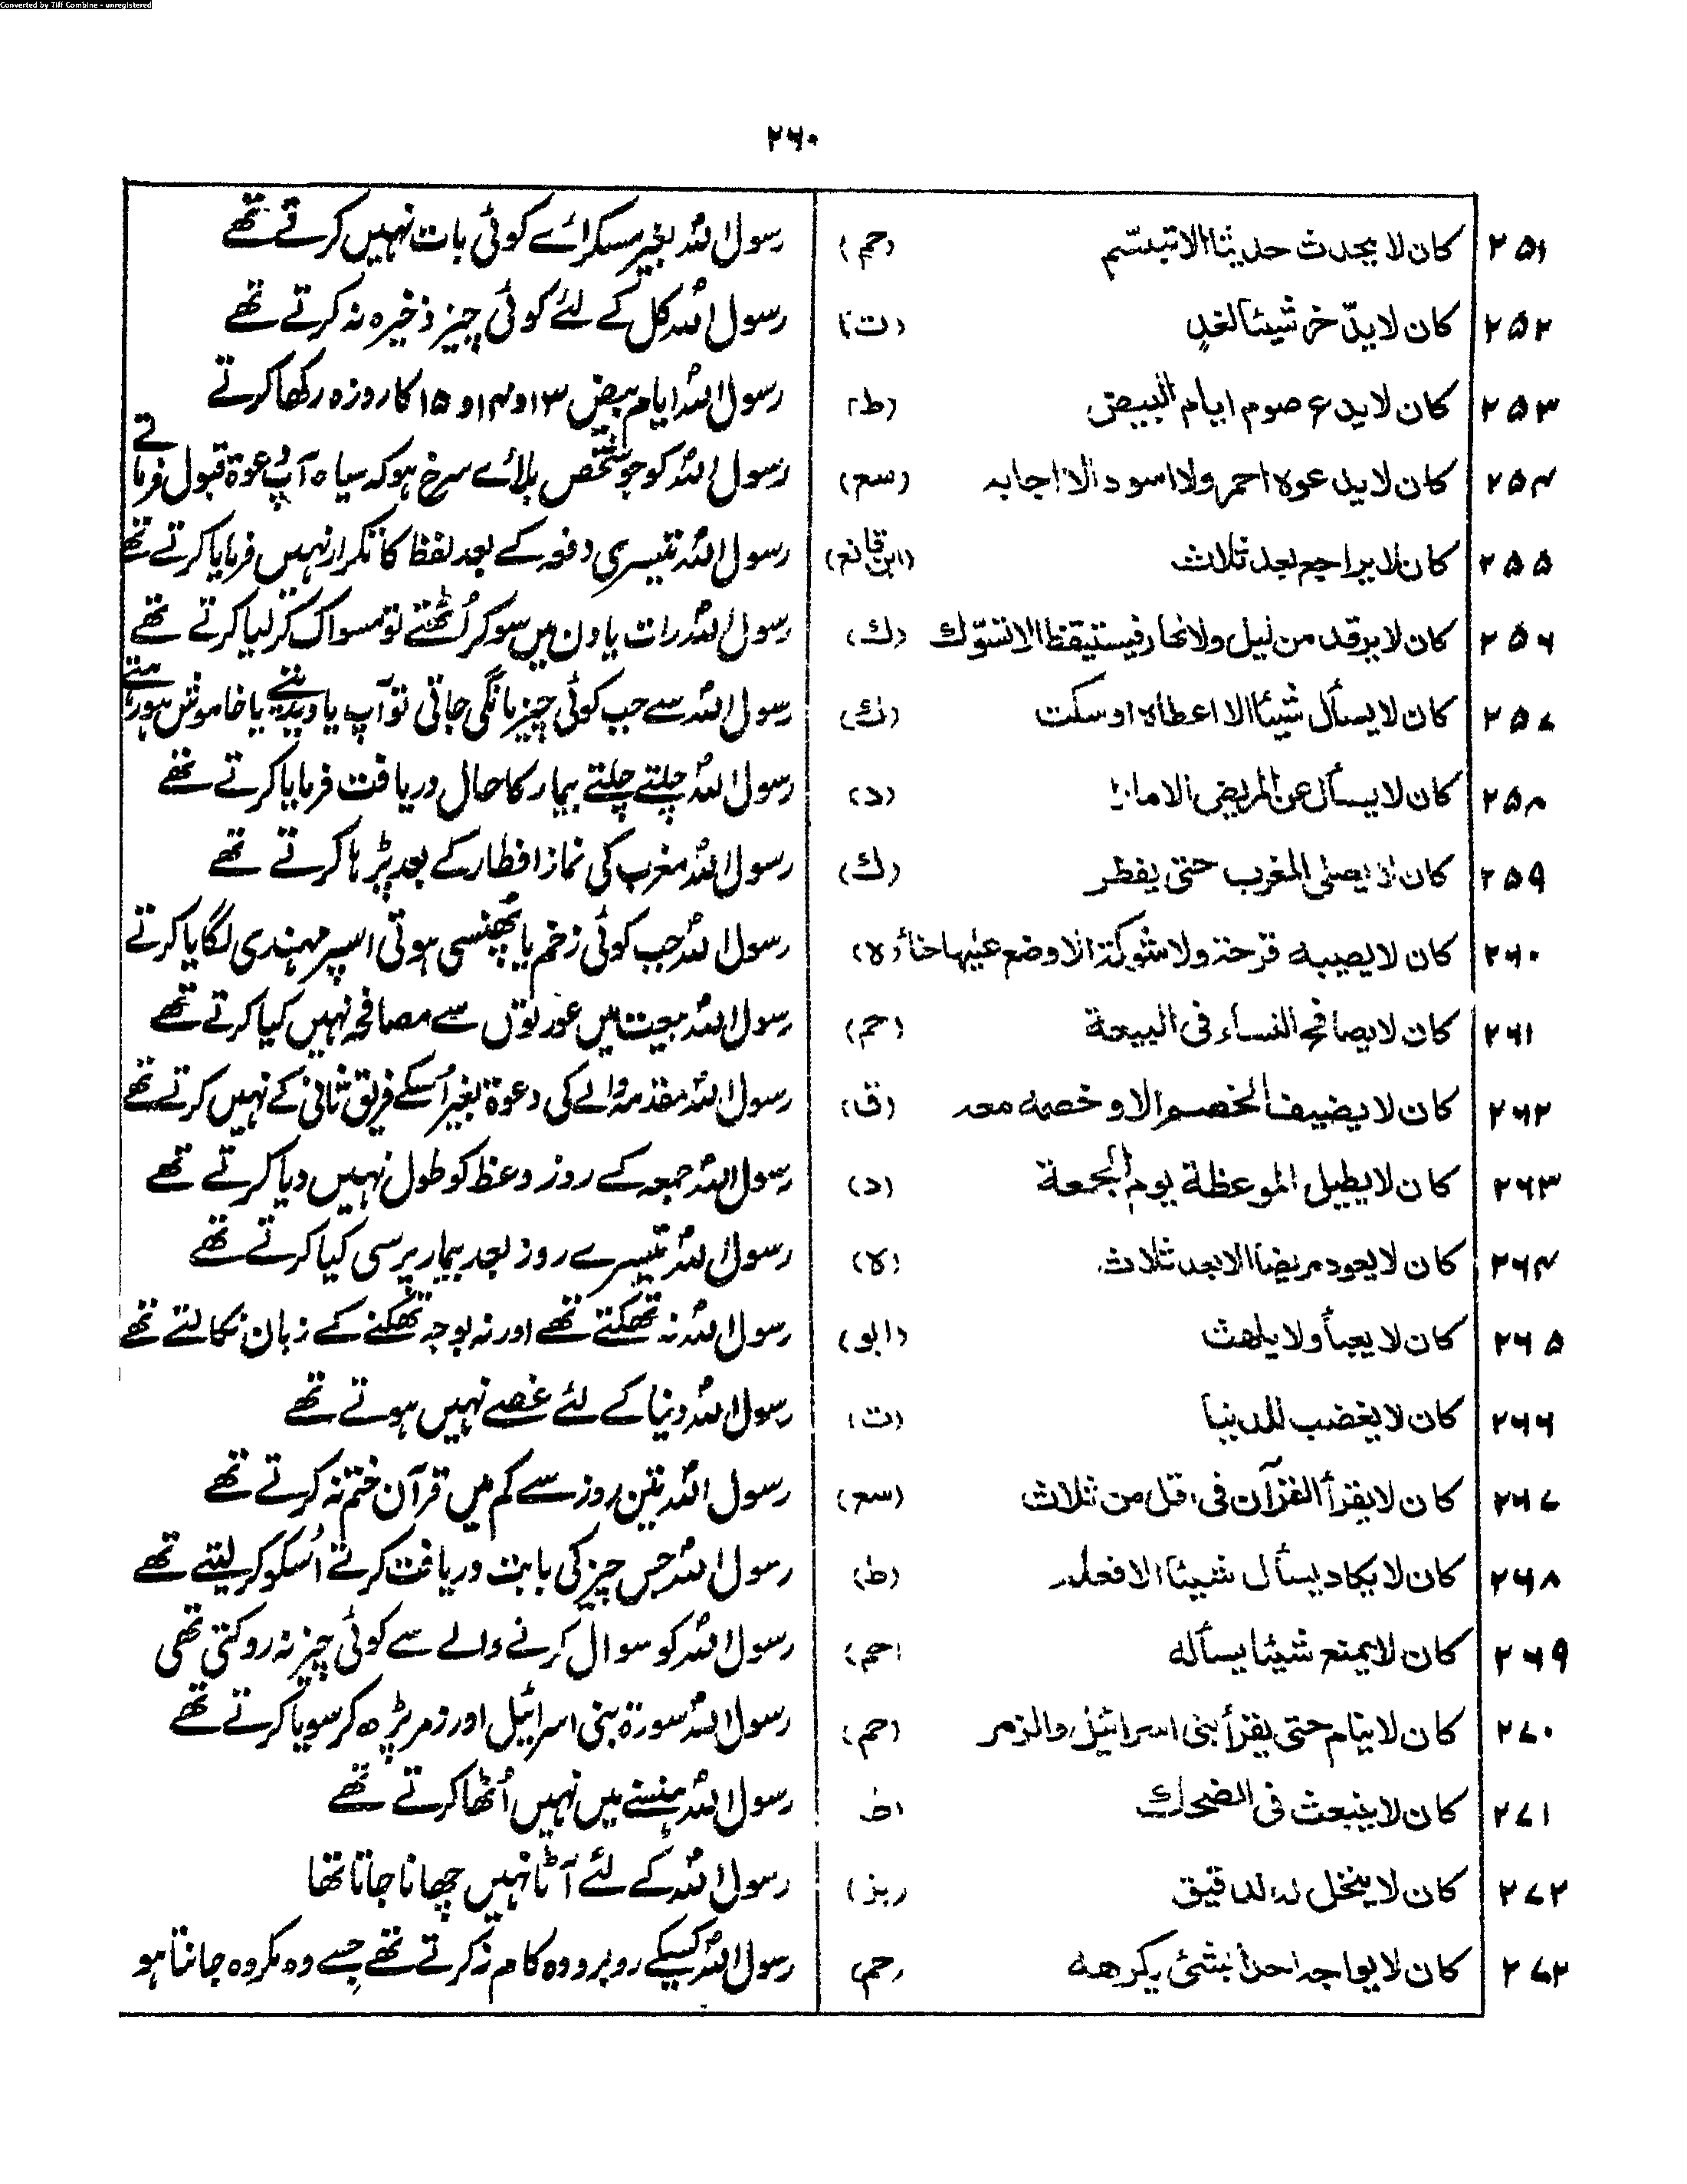 Converted by Tiff Combine - unregistered
۲۶۰
۲۵۱ كان لا يحدث حديثا الا تبسّم (حم) رسول اللہؐ بغیر مسکرائے کوئی بات نہیں کرتے تھے
۲۵۲ كان لا يدّخر شيئا لغدٍ (ت) رسول اللہؐ کل کے لئے کوئی چیز ذخیرہ نہ کرتے تھے
۲۵۳ كان لا يدع صوم ايام البيض (ط) رسول اللہؐ ایام بیض ۱۳ و ۱۴ و ۱۵ کا روزہ رکھا کرتے
۲۵۴ كان لا يدعوه احمر ولا اسود الا اجابه (سع) رسول اللہؐ کو جو شخص بلائے سرخ ہو کہ سیاہ آپؐ دعوۃ قبول فرماتے
۲۵۵ كان لا يراجع بعد ثلاث (ابن قانع) رسول اللہؐ تیسری دفعہ کے بعد لفظ کا تکرار نہیں فرمایا کرتے تھے
۲۵۶ كان لا يرقد من ليل ولا نهار فيستيقظ الا تسوّك (ك) رسول اللہؐ رات یا دن میں سو کر اُٹھتے تو مسواک کر لیا کرتے تھے
۲۵۷ كان لا يسأل شيئا الا اعطاه او سكت (ك) رسول اللہؐ سے جب کوئی چیز مانگی جاتی تو آپ یا دیدیتے یا خاموش ہو رہتے
۲۵۸ كان لا يسأل عن المريض الا مارا (د) رسول اللہؐ چلتے چلتے بیمار کا حال دریافت فرمایا کرتے تھے
۲۵۹ كان لا يصلى المغرب حتى يفطر (ك) رسول اللہؐ مغرب کی نماز افطار کے بعد پڑہا کرتے تھے
۲۶۰ كان لا يصيبه قرحة ولا شوكة الا وضع عليها حناء (ه) رسول اللہؐ جب کوئی زخم یا پُھنسی ہوتی اسپر مہندی لگایا کرتے
۲۶۱ كان لا يصافح النساء فى البيعة (حم) رسول اللہؐ بیعت میں عورتوں سے مصافحہ نہیں کیا کرتے تھے
۲۶۲ كان لا يضيف الخصم الا و خصمه معه (ق) رسول اللہؐ مقدمہ والے کی دعوۃ بغیر اُسکے فریق ثانی کے نہیں کرتے تھے
۲۶۳ كان لا يطيل الموعظة يوم الجمعة (د) رسول اللہؐ جمعہ کے روز وعظ کو طول نہیں دیا کرتے تھے
۲۶۴ كان لا يعود مريضا الا بعد ثلاث (ه) رسول اللہؐ تیسرے روز بعد بیمار پرسی کیا کرتے تھے
۲۶۵ كان لا يعبأ ولا يلهث (ابو) رسول اللہؐ نہ تھکتے تھے اور نہ بوجہ تھکنے کے زبان نکالتے تھے
۲۶۶ كان لا يغضب للدنيا (ت) رسول اللہؐ دنیا کے لئے غصے نہیں ہوتے تھے
۲۶۷ كان لا يقرأ القرآن فى اقل من ثلاث (سع) رسول اللہؐ تین روز سے کم میں قرآن ختم نہ کرتے تھے
۲۶۸ كان لا يكاد يسأل شيئا الا فعله (ط) رسول اللہؐ جس چیز کی بابت دریافت کرتے اُسکو کر لیتے تھے
۲۶۹ كان لا يمنع شيئا يسأله (حم) رسول اللہؐ کو سوال کرنے والے سے کوئی چیز نہ روکتی تھی
۲۷۰ كان لا ينام حتى يقرأ بنى اسرائيل والزمر (حم) رسول اللہؐ سورۃ بنی اسرائیل اور زمر پڑھ کر سویا کرتے تھے
۲۷۱ كان لا ينبعث فى الضحك (ط رسول اللہؐ ہنسنے میں نہیں اُٹھا کرتے تھے
۲۷۲ كان لا ينخل له الدقيق (بز) رسول اللہؐ کے لئے آٹا نہیں چھانا جاتا تھا
۲۷۳ كان لا يواجه احدا بشئ يكرهه (حم) رسول اللہؐ کسیکے روبرو وہ کام نہ کرتے تھے جسے وہ مکروہ جانتا ہو